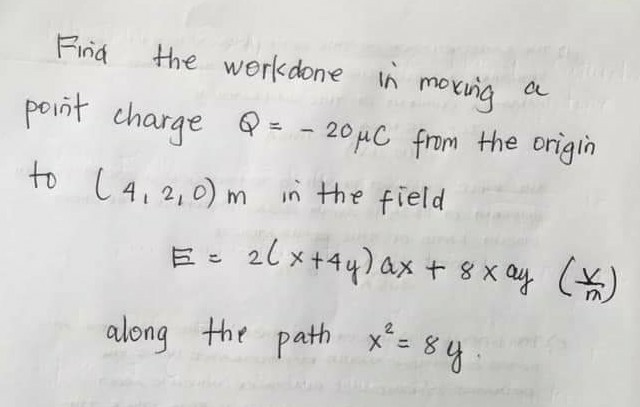 Find the workdone in moving a
point charge Q = - 20 μC from the origin
to (4, 2, 0) m in the field
E = 2(x+4y) ax + 8x ay (V/m)
along the path x² = 8y.